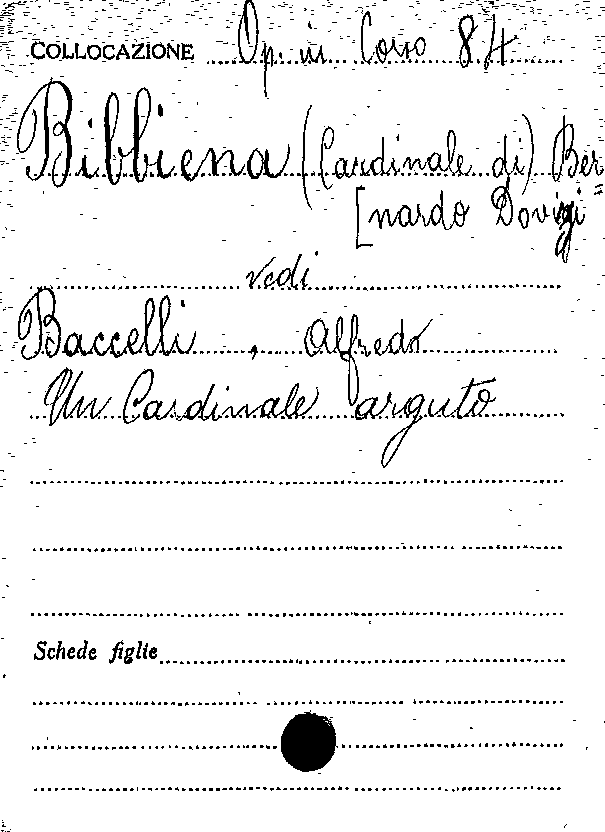 COLLOCAZIONE Op. in Corso 84
Bibbiena (Cardinale di) Ber=
[nardo Dovizi
vedi
Baccelli, Alfredo
Un Cardinale arguto
Schede figlie